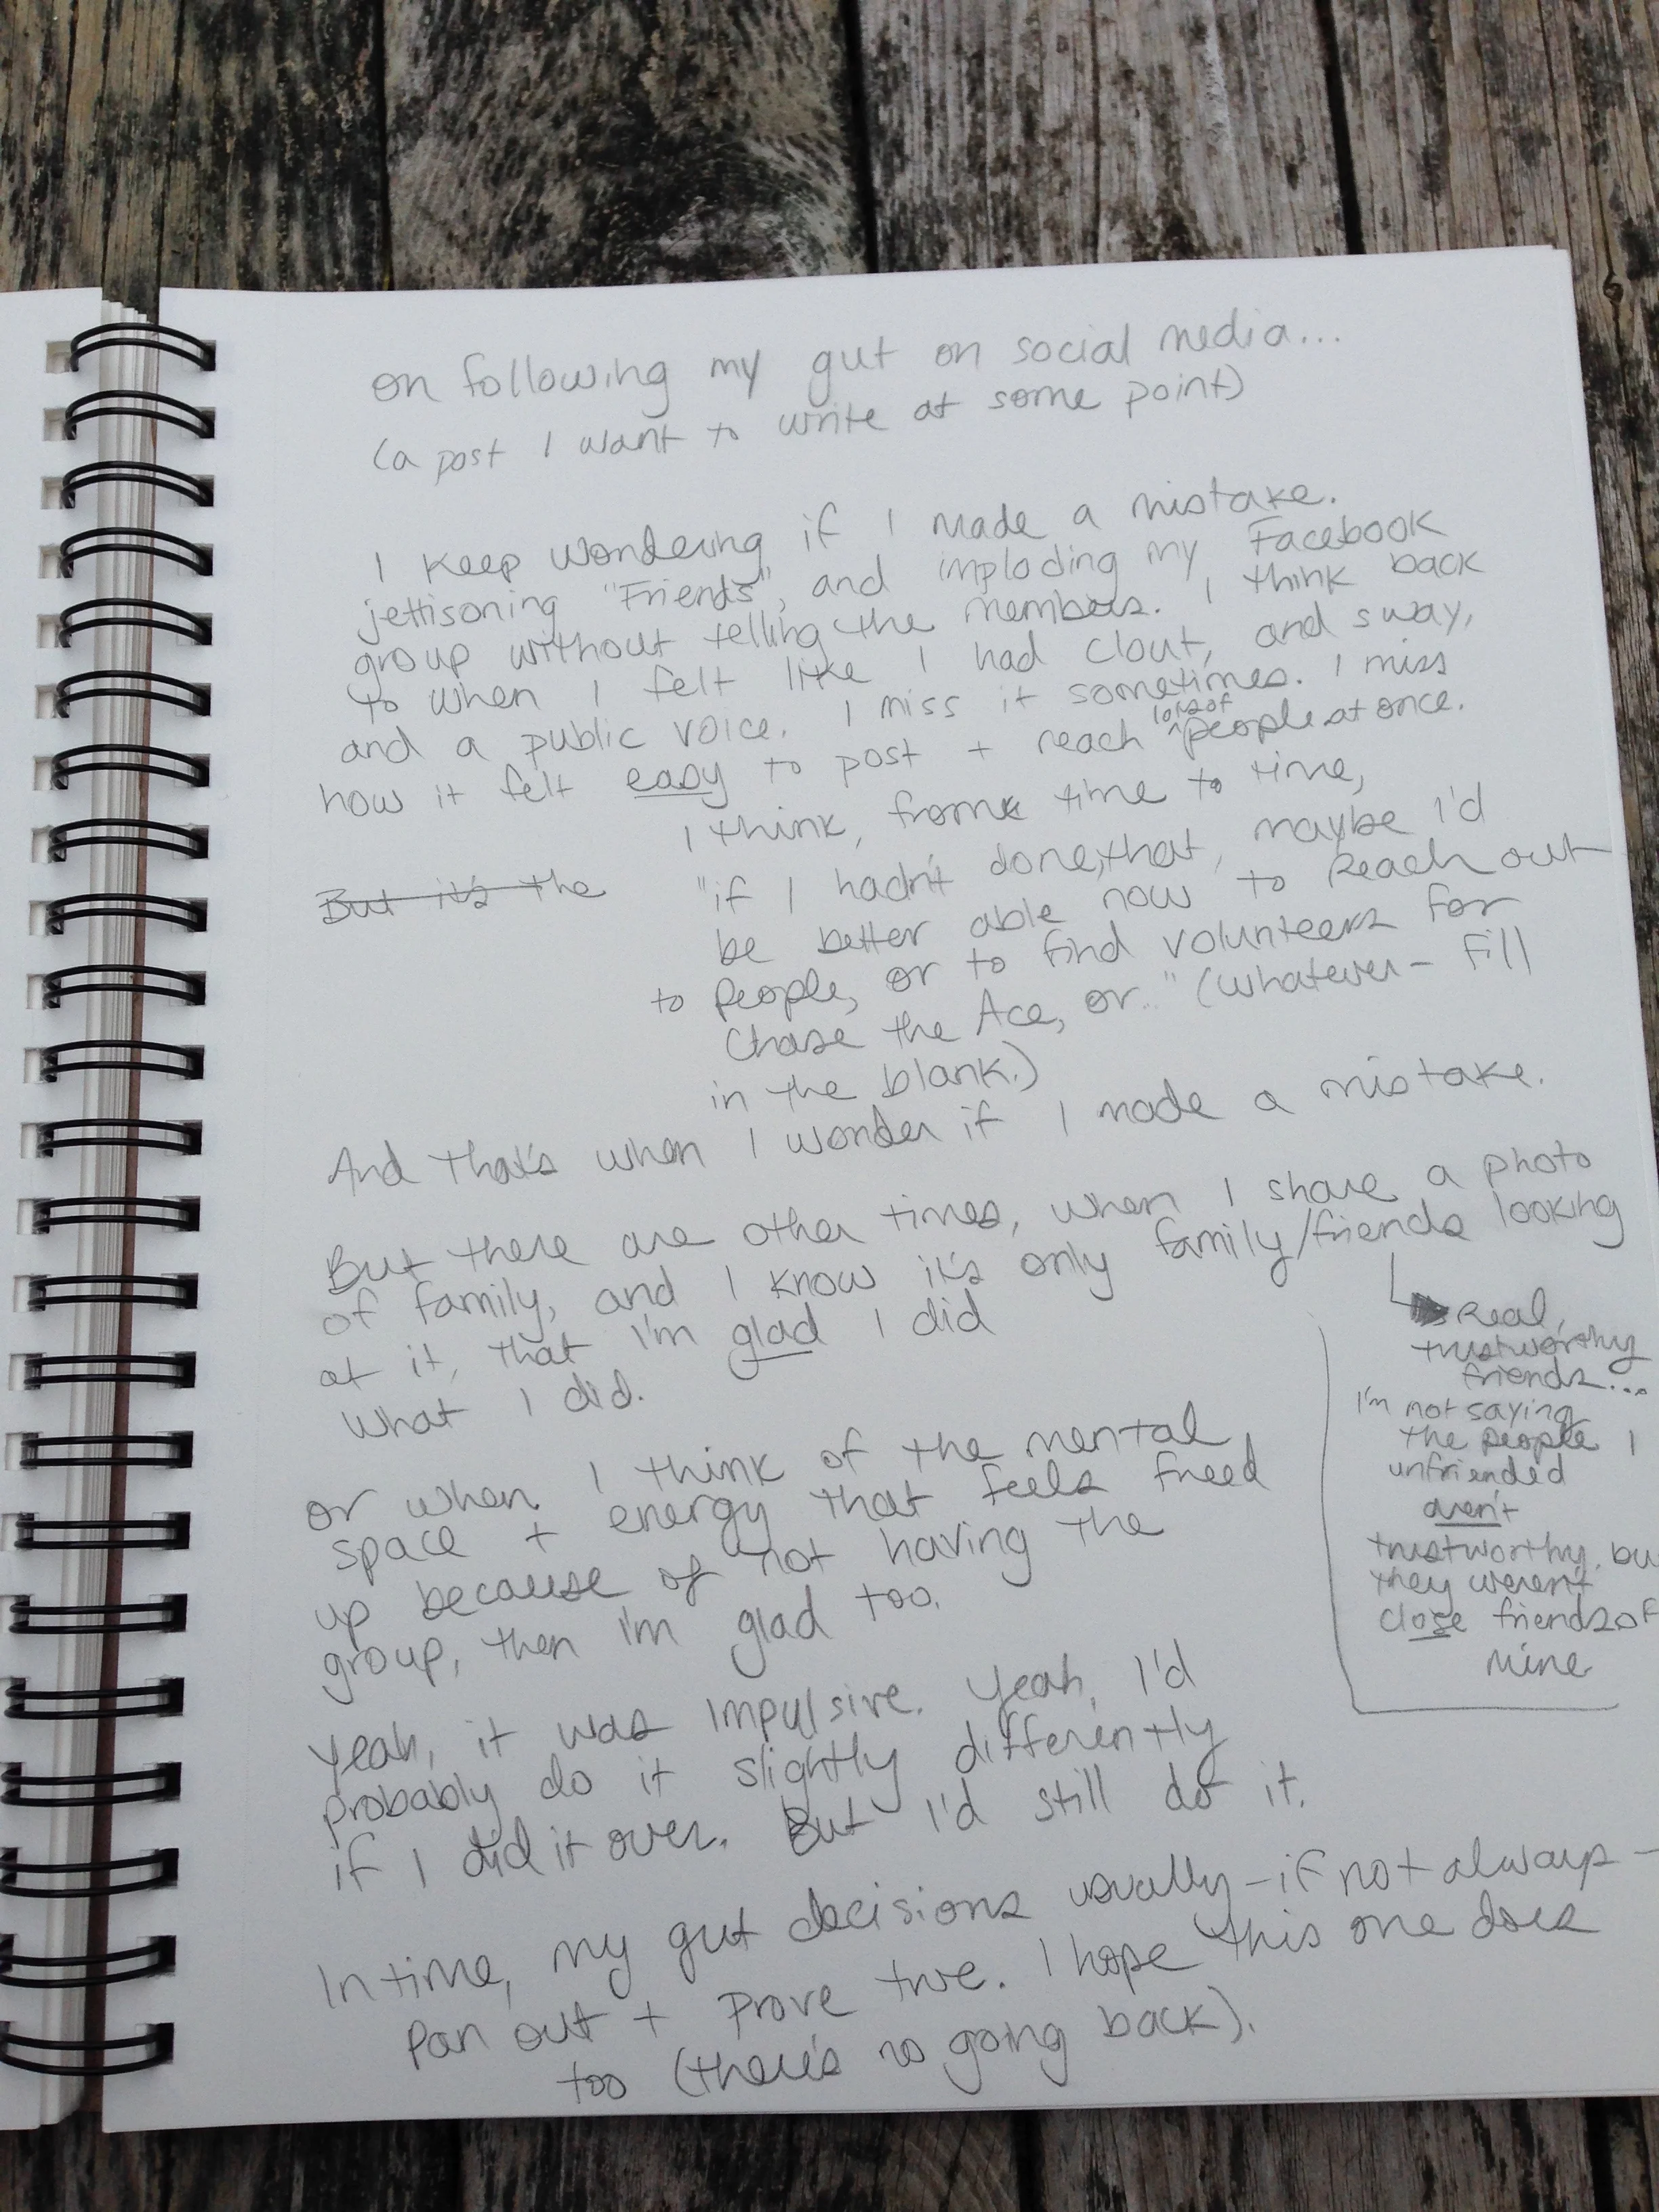 on following my gut on social media...
(a post I want to write at some point)
I keep wondering if I made a mistake.
jettisoning "Friends", and imploding my Facebook
group without telling the members. I think back
to when I felt like I had clout, and sway,
and a public voice. I miss it sometimes. I miss
how it felt easy to post + reach lots of people at once.
I think, from time to time,
But it's the
"if I hadn't done that, maybe I'd
be better able now to reach out
to people, or to find volunteers for
Chase the Ace, or.." (whatever - fill
in the blank.)
And that's when I wonder if I made a mistake.
But there are other times, when I share a photo
of family, and I know it's only family/friends looking
at it, that I'm glad I did
what I did.
Real,
trustworthy
friends...
I'm not saying
the people I
unfriended
aren't
trustworthy, bu
they weren't
close friends of
mine
or when I think of the mental
space + energy that feels freed
up because of not having the
group, then I'm glad too.
Yeah, it was impulsive. Yeah, I'd
probably do it slightly differently
if I did it over. But I'd still do it.
In time, my gut decisions usually - if not always -
pan out + prove true. I hope this one does
too (there's no going back).